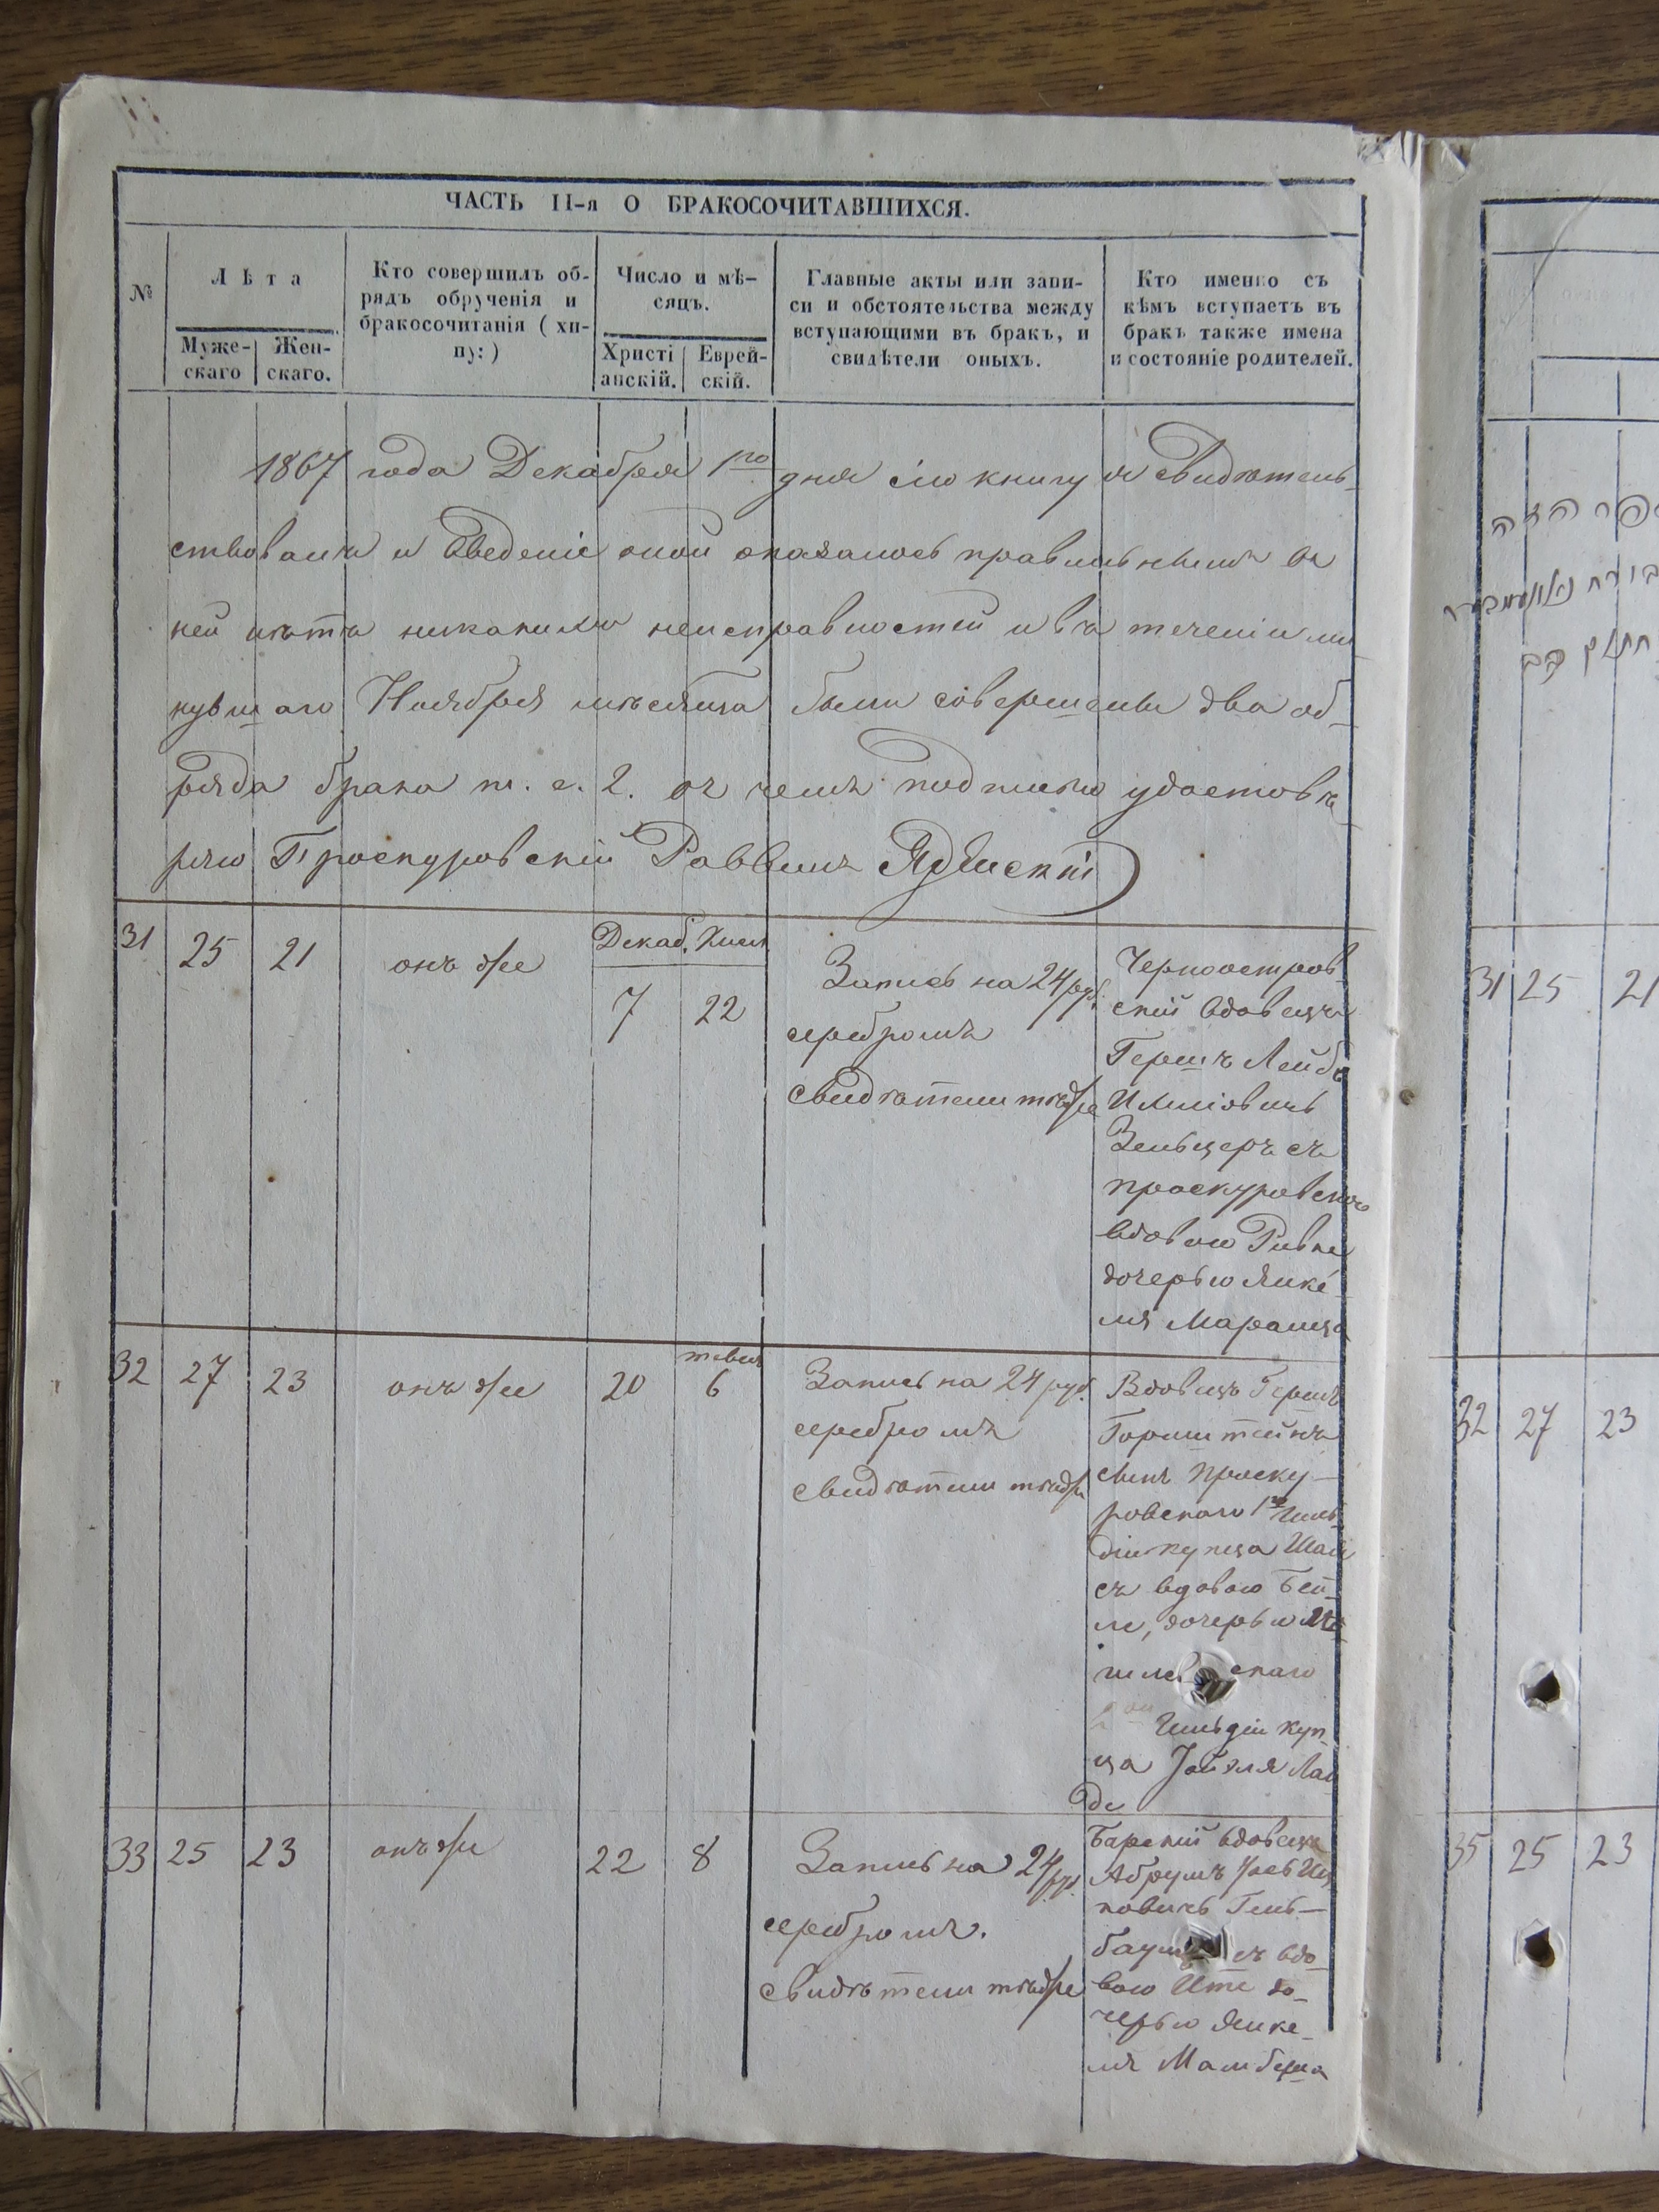 ЧАСТЬ II-я О БРАКОСОЧИТАВШИХСЯ.
№
Лѣта
Муже-
скаго
Жен-
скаго.
Кто совершилъ об-
рядъ обрученія и
бракосочитанія (хи-
пу:)
Число и мѣ-
сяцъ.
Христі
анскій.
Еврей-
скій.
Главные акты или запи-
си и обстоятельства между
вступающими въ бракъ, и
свидѣтели оныхъ.
Кто именно съ
кѣмъ вступаетъ въ
бракъ также имена
и состояніе родителей.
1867 года Декабря 1го дня сію книгу я свидѣтель-
ствовалъ и введеніе оной оказалось правильнымъ въ
ней нѣтъ никакихъ неисправностей и въ теченіи ми
нувшаго Ноября мѣсяца были совершены два об-
ряда брака т. е. 2. въ чемъ подписью удостовѣ
ряю Проскуровскій Раввинъ
31 25 21 онъ же
Декаб. Кисл
7 22
Запись на 24 руб.
серебромъ
Свидѣтели тѣже
Черноостров
скій вдовецъ
Гершъ Лейбъ
Зельцеръ съ
проскуровскою
вдовою Ривке
дочерью Янке-
ля
32 27 23 онъ же 20
тевеи
6
Запись на 24 руб.
серебромъ
свидѣтели тѣже
Вдовецъ Гершъ
Горнштейнъ
сынъ Проску-
ровскаго 1й Гиль
діи купца
съ вдовою Бей
ле, дочерью
скаго
Гильдіи куп
ца
де
33 25 23 онъ же 22 8
Запись на 24 руб.
серебромъ.
Свидѣтели тѣже
Барскій вдовецъ
Абрумъ
ковичъ Гель-
баумъ съ вдо-
вою Ите до-
черью Янке-
ля
31 25 21
32 27 23
35 25 23